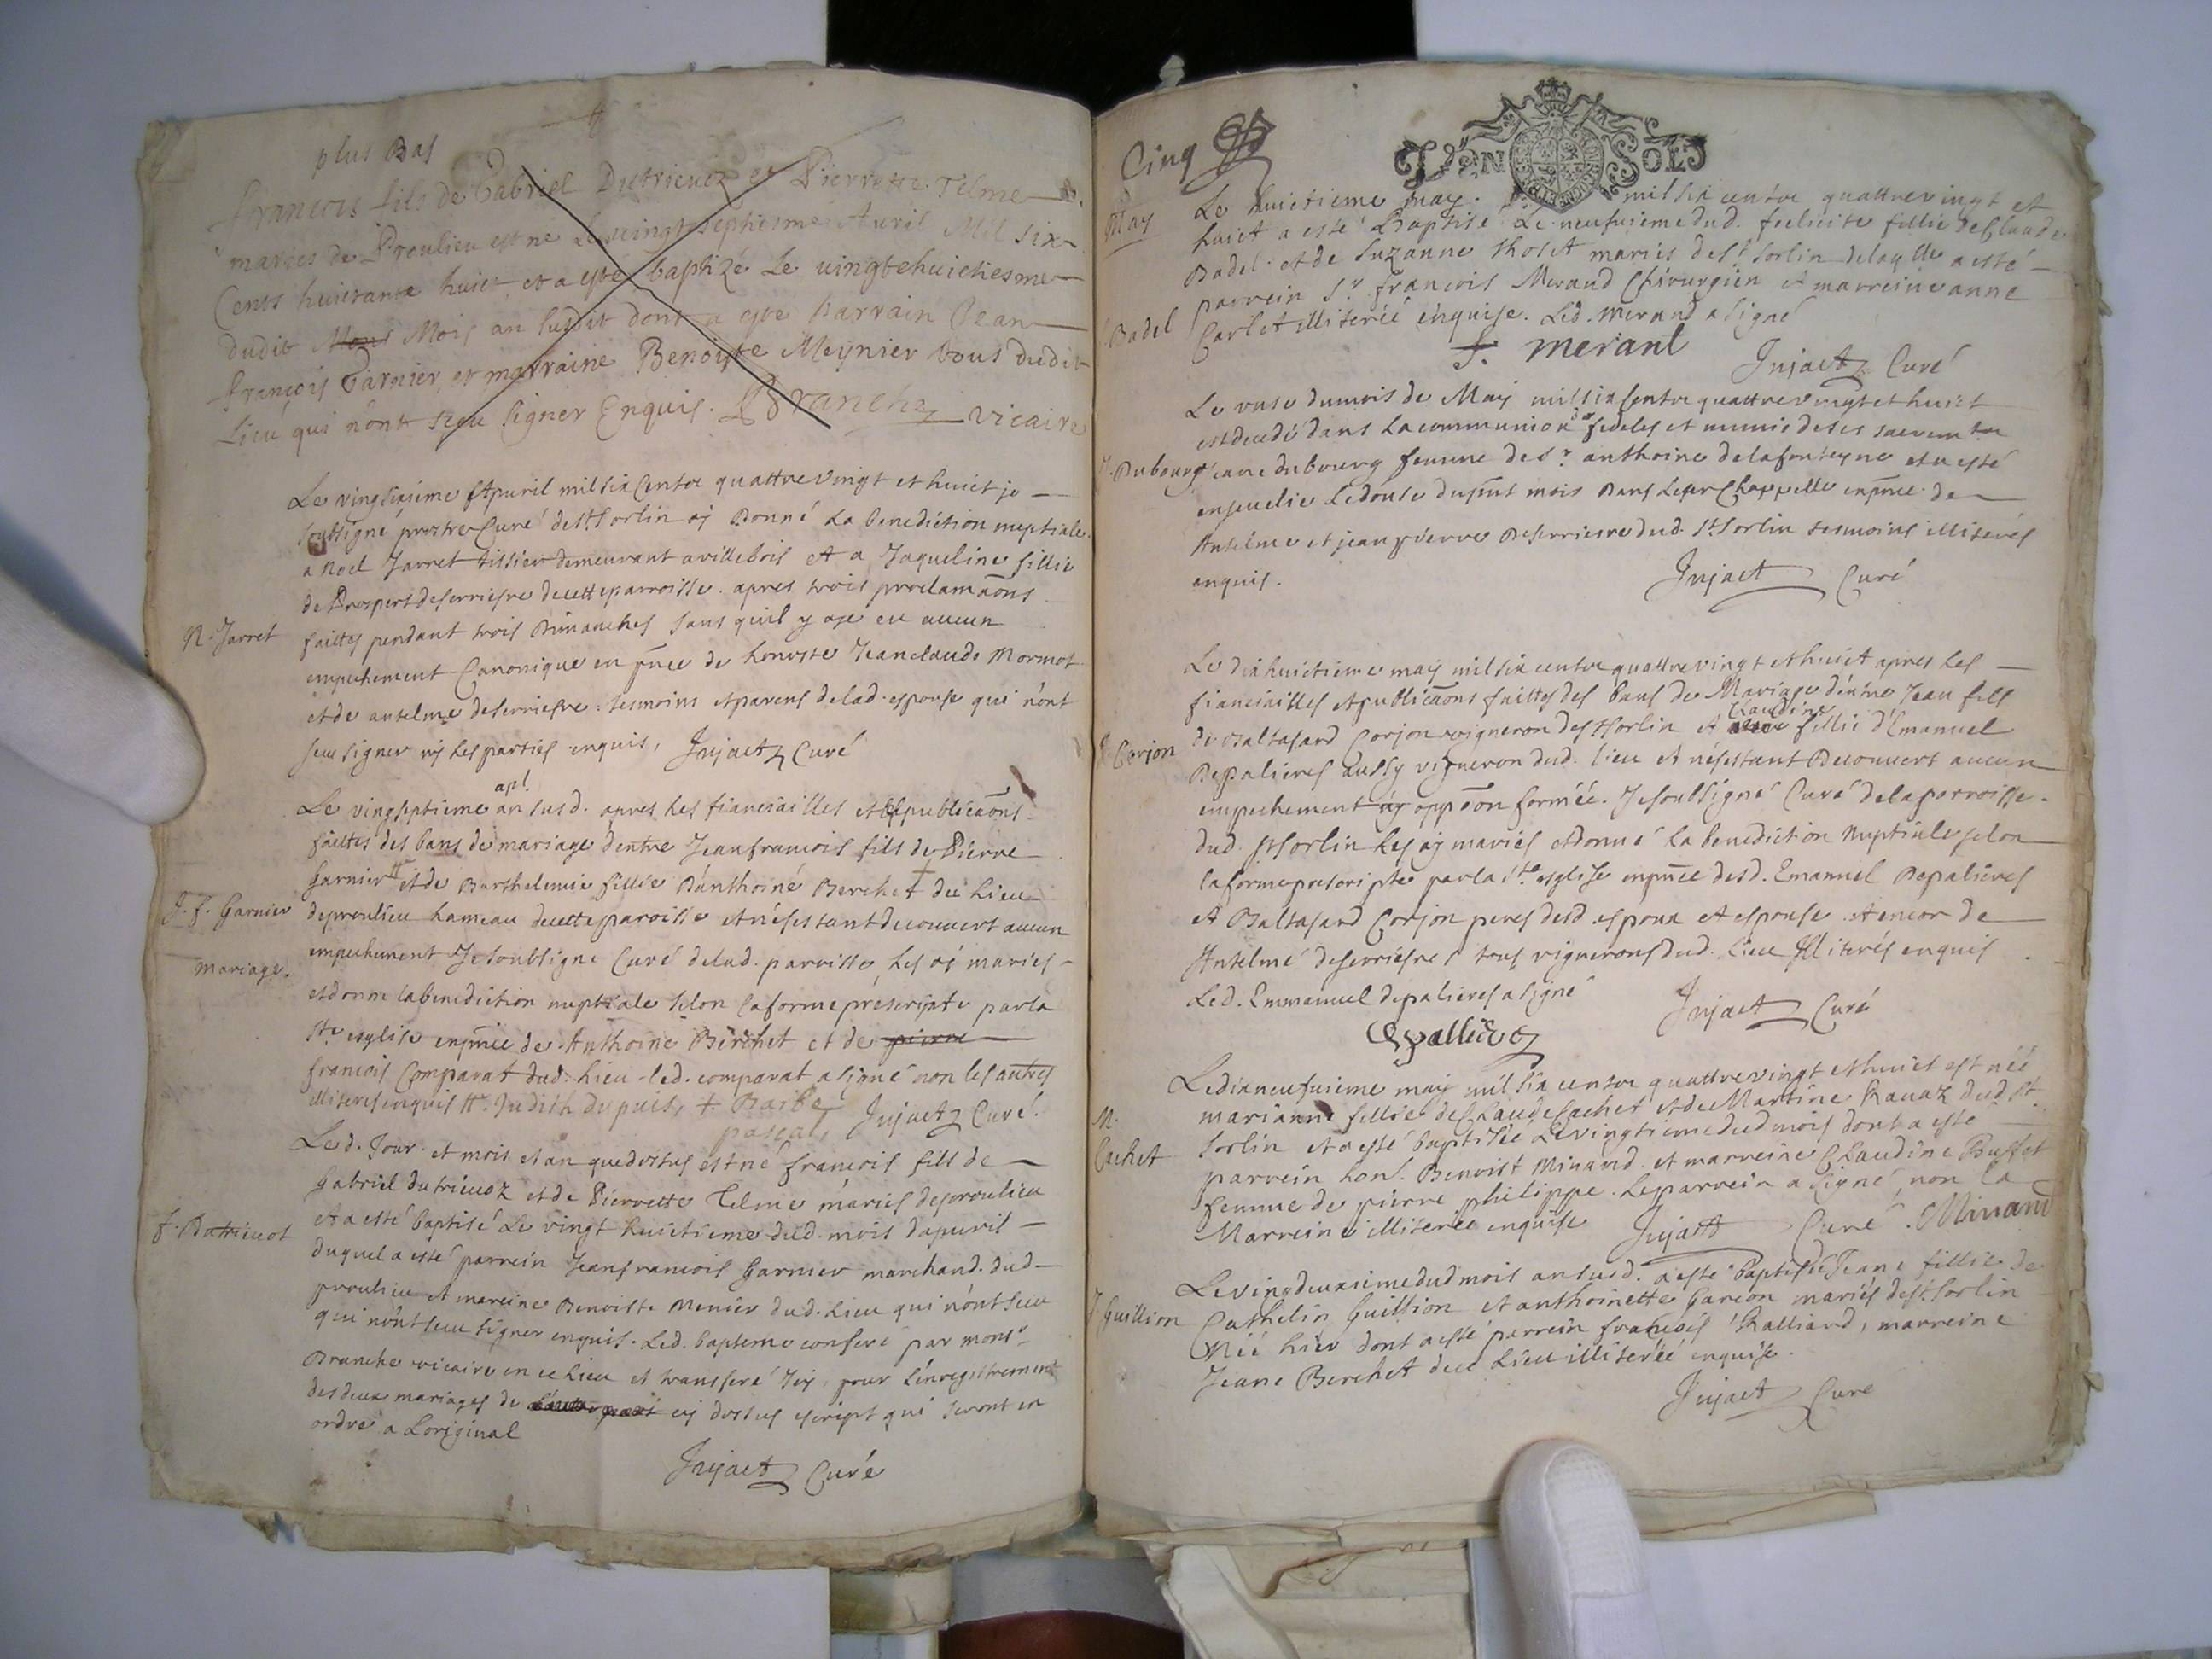 plus Bas
francois fils de Gabriel Dutrieuoz et Pierrette Telme
mariés de Proulieu est né Le vingt septiesme Avril Mil six
Cents huictante huict, et a esté baptizé Le vingtehuictiesme
dudit Mois an susdit dont a esté Parrain Jean
françois Garnier, et marraine Benoiste Meynier tous dudit
Lieu qui n'ont sçeu signer Enquis. Branche vicaire
Le vingtsixieme Apuril mil six Centz quattre vingt et huict je
soubsigné prestre Curé de St Sorlin aÿ Donné La benediction nuptiale
a Noel Jarret tissier demeurant a villebois et a Jaqueline fillie
de Prospert deserriesre de cette parroisse. apres trois proclamaõns
N. Jarret
faittes pendant trois Dimanches sans quil y aye eu aucun
empechement Canonique en pñce de honeste Jean claude Mormot
et de anselme deserriesre tesmoins et parens de lad. espouse qui n'ont
sceu signer nÿ les parties enquis, Jnjact Curé
apl.
Le vingseptieme an susd. apres les fianciailles et publicaõns
faittes des bans de mariage dentre Jeanfrancois fils de Pierre
garnier et de Barthelemie fillie D'anthoine Berchet du Lieu
J. f. Garnier
de proulieu hameau de cette paroisse et n'esestant decouvert aucun
mariage.
empechement Je soubsigne Curé de lad. parroisse les aÿ mariés
et donne la benediction nuptiale selon la forme préscripte par la
Ste esglise en pñce de Anthoine Berchet et de pierre
francois Comparat dud. Lieu led. comparat a signé non les autres
illiteres enquis Judith dupuis, Barbe pascal, Jnjact Curé.
Le d. Jour et mois et an que dessus est né francois fils de
Gabriel dutrieuoz et de Pierrette Telme mariés de proulieu
F. Dutrieuot
et a esté baptisé Le vingt huictieme dud. mois dapuril
duquel a esté parrein Jeanfrancois Garnier marchand dud.
proulieu et mareine Benoiste Menier dud. Lieu qui n'ont sceu
qui n'ont sceu signer enquis. Led. bapteme conferé par monsr
Branche vicaire en ce Lieu et transferé Icy pour L'enregistrement
des deux mariages de cÿ dessus escript qui seront en
ordre a Loriginal
Jnjact Curé
Cinq
UN SOL
May
Le huictieme may mil six centz quattre vingt et
huict a esté Baptisé Le neufuieme dud. felicite fillie de Claude
Badel et de Suzanne Tholet mariés de St Sorlin delaqlle a esté
Badel
parrein Sr francois Merand Chirurgien et marreine anne
Carlet illiterée enquise. Led. Merand a signé
F. merant Jnjact Curé
Le onse du mois de May mil six Centz quattre vingt et huict
est decedé dans la communion des fedeles et munie de ses sacremts
J. Dubourg
Jeane dubourg femme de sr anthoine delafonteyne et a esté
ensevelie Le douse dupñt mois Dans leur Chappelle en pñce de
Antelme et jean pierre Deserriesre dud. St Sorlin tesmoins illiterés
enquis.
Jnjact Curé
Le dixhuictieme may mil six centz quattre vingt et huict apres les
fianciailles et publicaõns faittes des bans de Mariage d'entre Jean fils
Claudine
J. Corjon
de Baltasard Corjon vigneron de St Sorlin et fillie d'Emanuel
Depalieres aussy vigneron dud. lieu et n'esestant Decouvert aucun
empechement nÿ oppõon formée. Je soubsigné Curé de la parroisse
dud. St Sorlin les aÿ mariés et donné la benediction Nuptiale selon
la forme prescripte par la Ste esglise en pñce desd. Emanuel Depalieres
et Baltasard Corjon peres desd. espoux et espouse. et encor de
Antelme deserriesres tous vignerons dud. lieu illiterés enquis
Led. Emmanuel depalieres a signé
Jnjact Curé
Depallieres
Le dixneufuieme may mil six centz quattre vingt et huict est née
M. Cachet
marianne fillie de Claude Cachet et de Martine Rauaz dud. St
Sorlin et a esté baptisée Le vingtieme dud mois dont a esté
parrein hon. Benoist Minand et marreine Claudine Buffet
femme de pierre philippe. Le parrein a signé, non la
Marreine illiterée enquise Jnjact Curé. Minand
Le vingdeuxieme dud mois an susd. a esté baptisée Jeane fillie de
J. Guillion
Cathelin Guillion et anthoinette Garcon mariés de St Sorlin
Née hier dont a esté parrein francois Ralliard, marreine
Jeane Berchet dud Lieu illiterée enquise.
Jnjact Curé